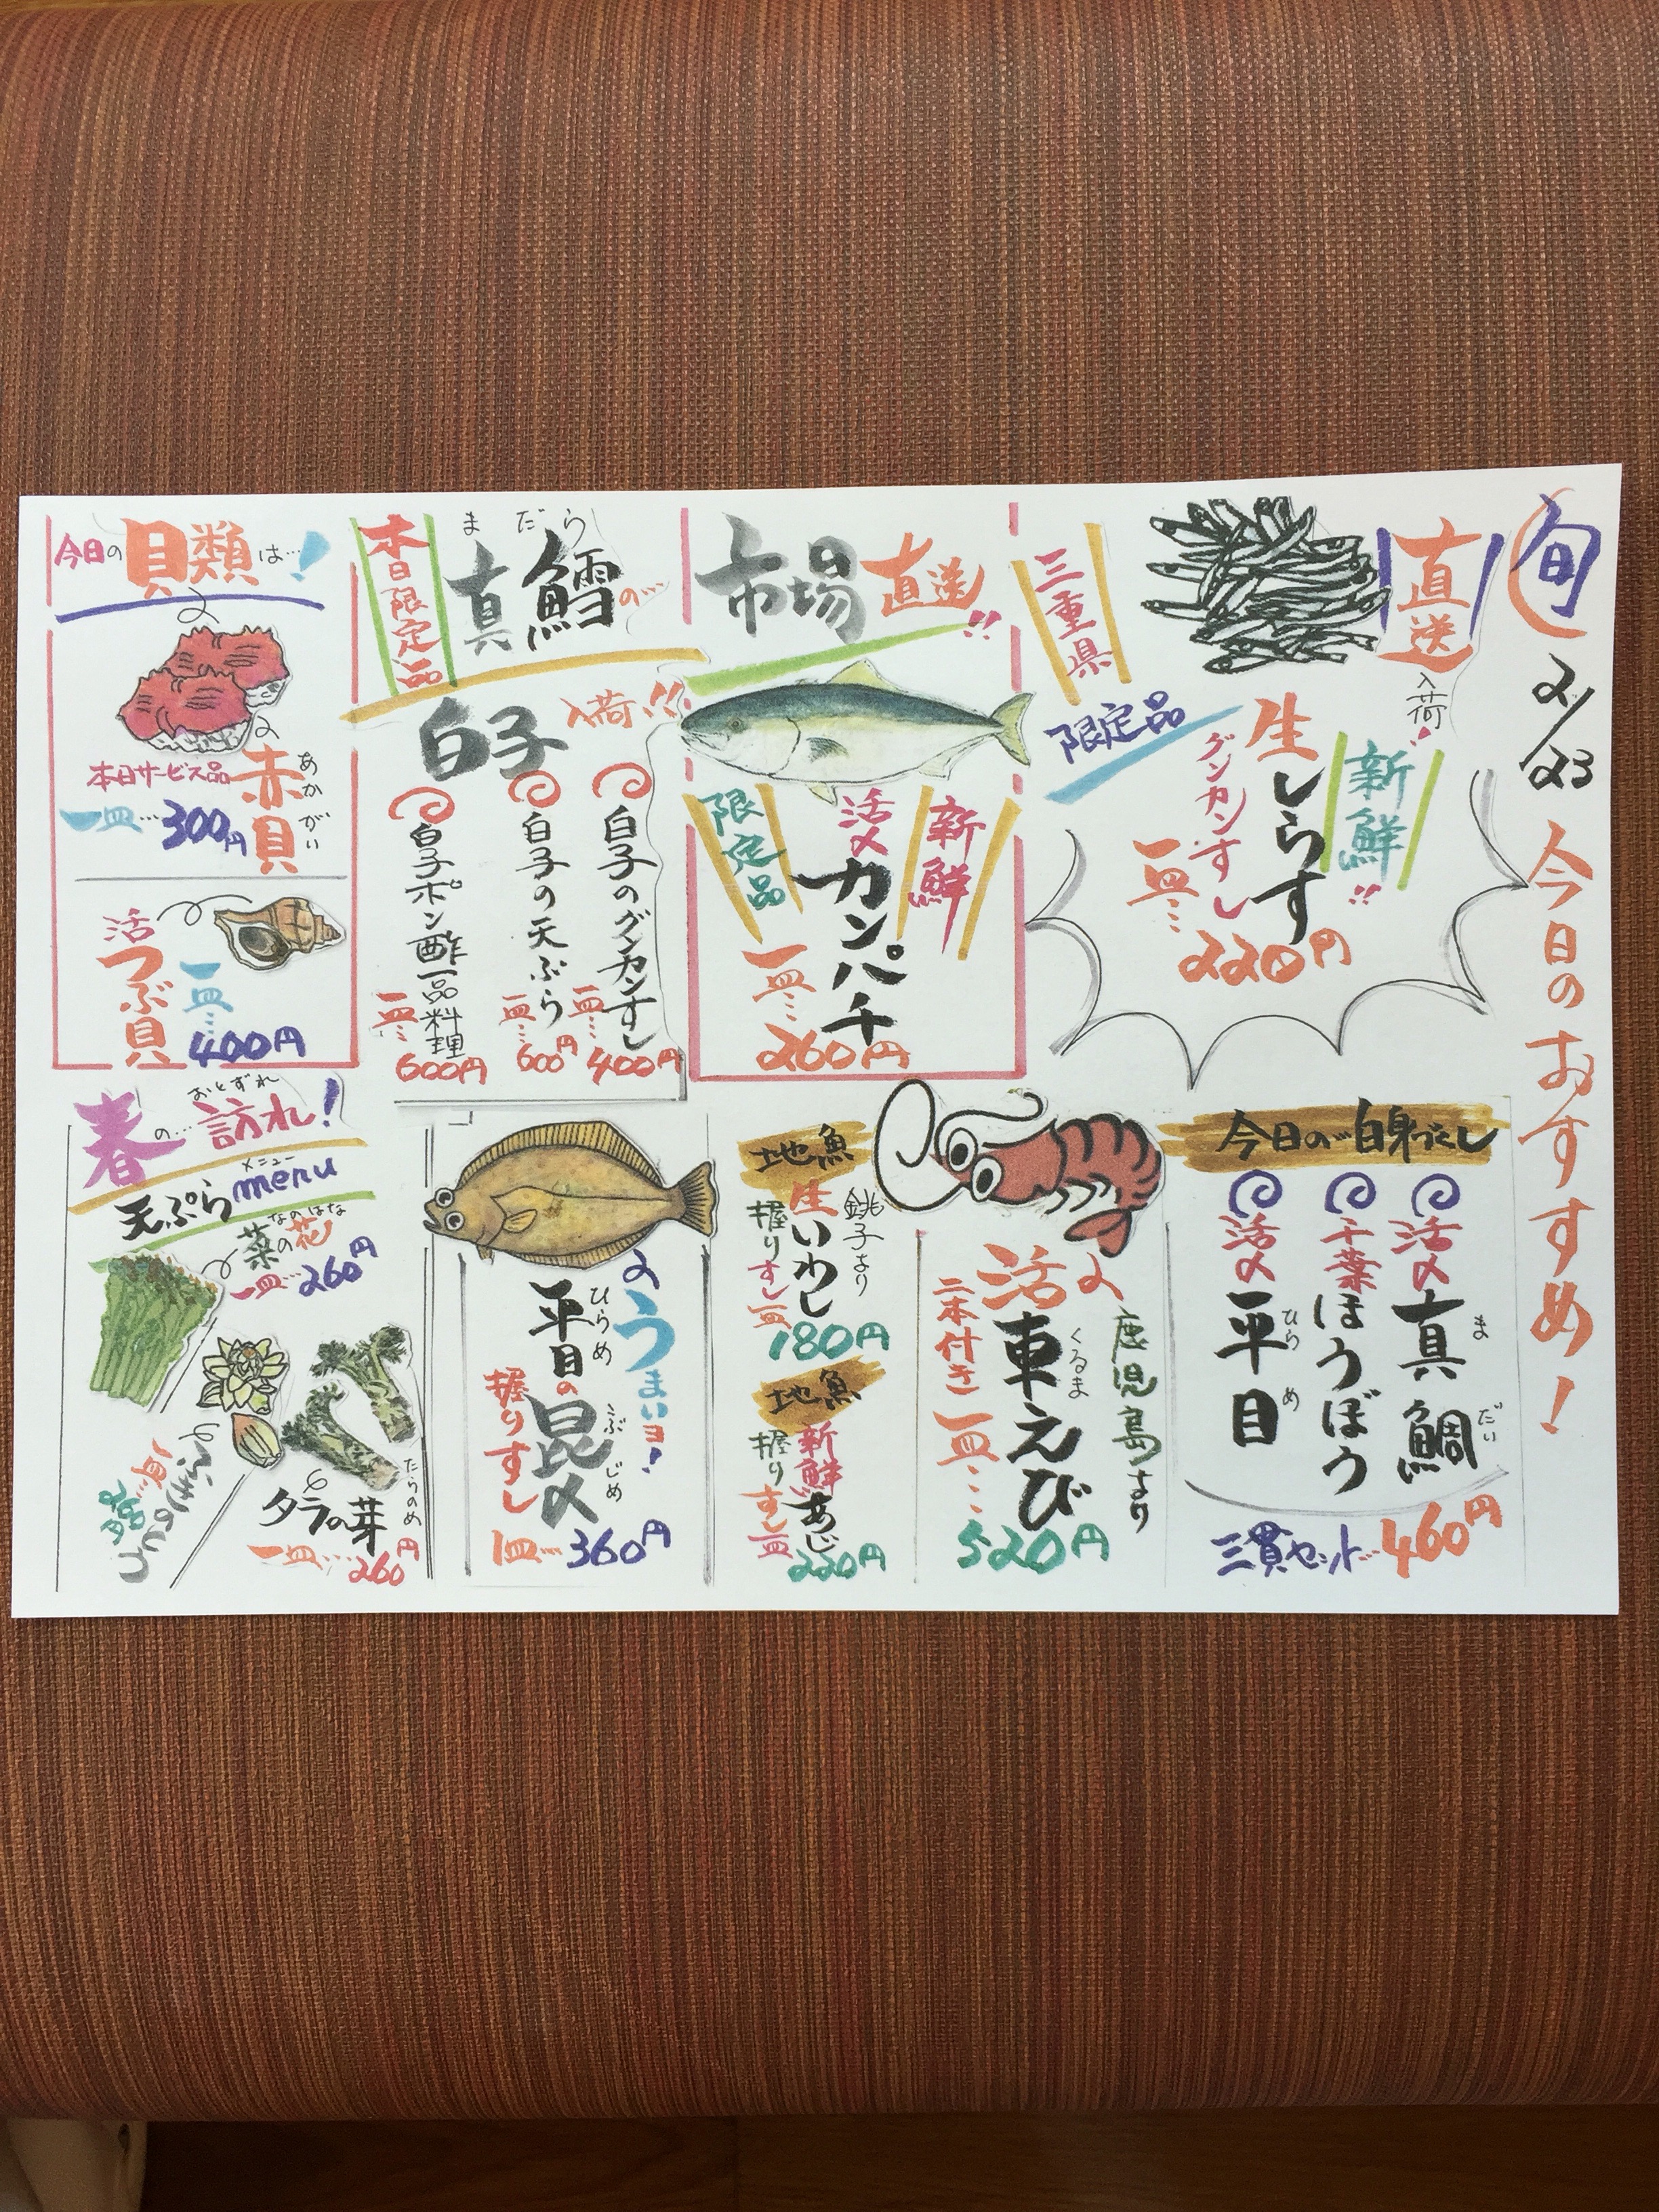 旬
2/23
今日のおすすめ!
直送
入荷!
三重県
限定品
新鮮!!
生しらす
グンカンすし
一皿…
220円
市場直送!!
新鮮
限定品
活〆カンパチ
一皿…
260円
本日限定品
まだら
真鱈の
白子
入荷!!
白子のグンカンすし
一皿…400円
白子の天ぷら
一皿…600円
白子ポン酢一品料理
一皿…600円
今日の貝類は…!
あかがい
赤貝
本日サービス品
一皿…300円
活つぶ貝
一皿…
400円
今日の白身づくし
まだい
活〆真鯛
千葉ほうぼう
ひらめ
活〆平目
三貫セット…460円
鹿児島より
くるま
活〆車えび
二本付き一皿…
520円
地魚
銚子より
生いわし
握りすし一皿
180円
地魚
新鮮あじ
握りすし一皿
220円
うまいヨ!
ひらめ
こぶじめ
平目の昆〆
握りすし
1皿…360円
おとずれ
春の…訪れ!
メニュー
天ぷらmenu
なのはな
菜の花
一皿…260円
ふきのとう
一皿
たらのめ
タラの芽
一皿…260円